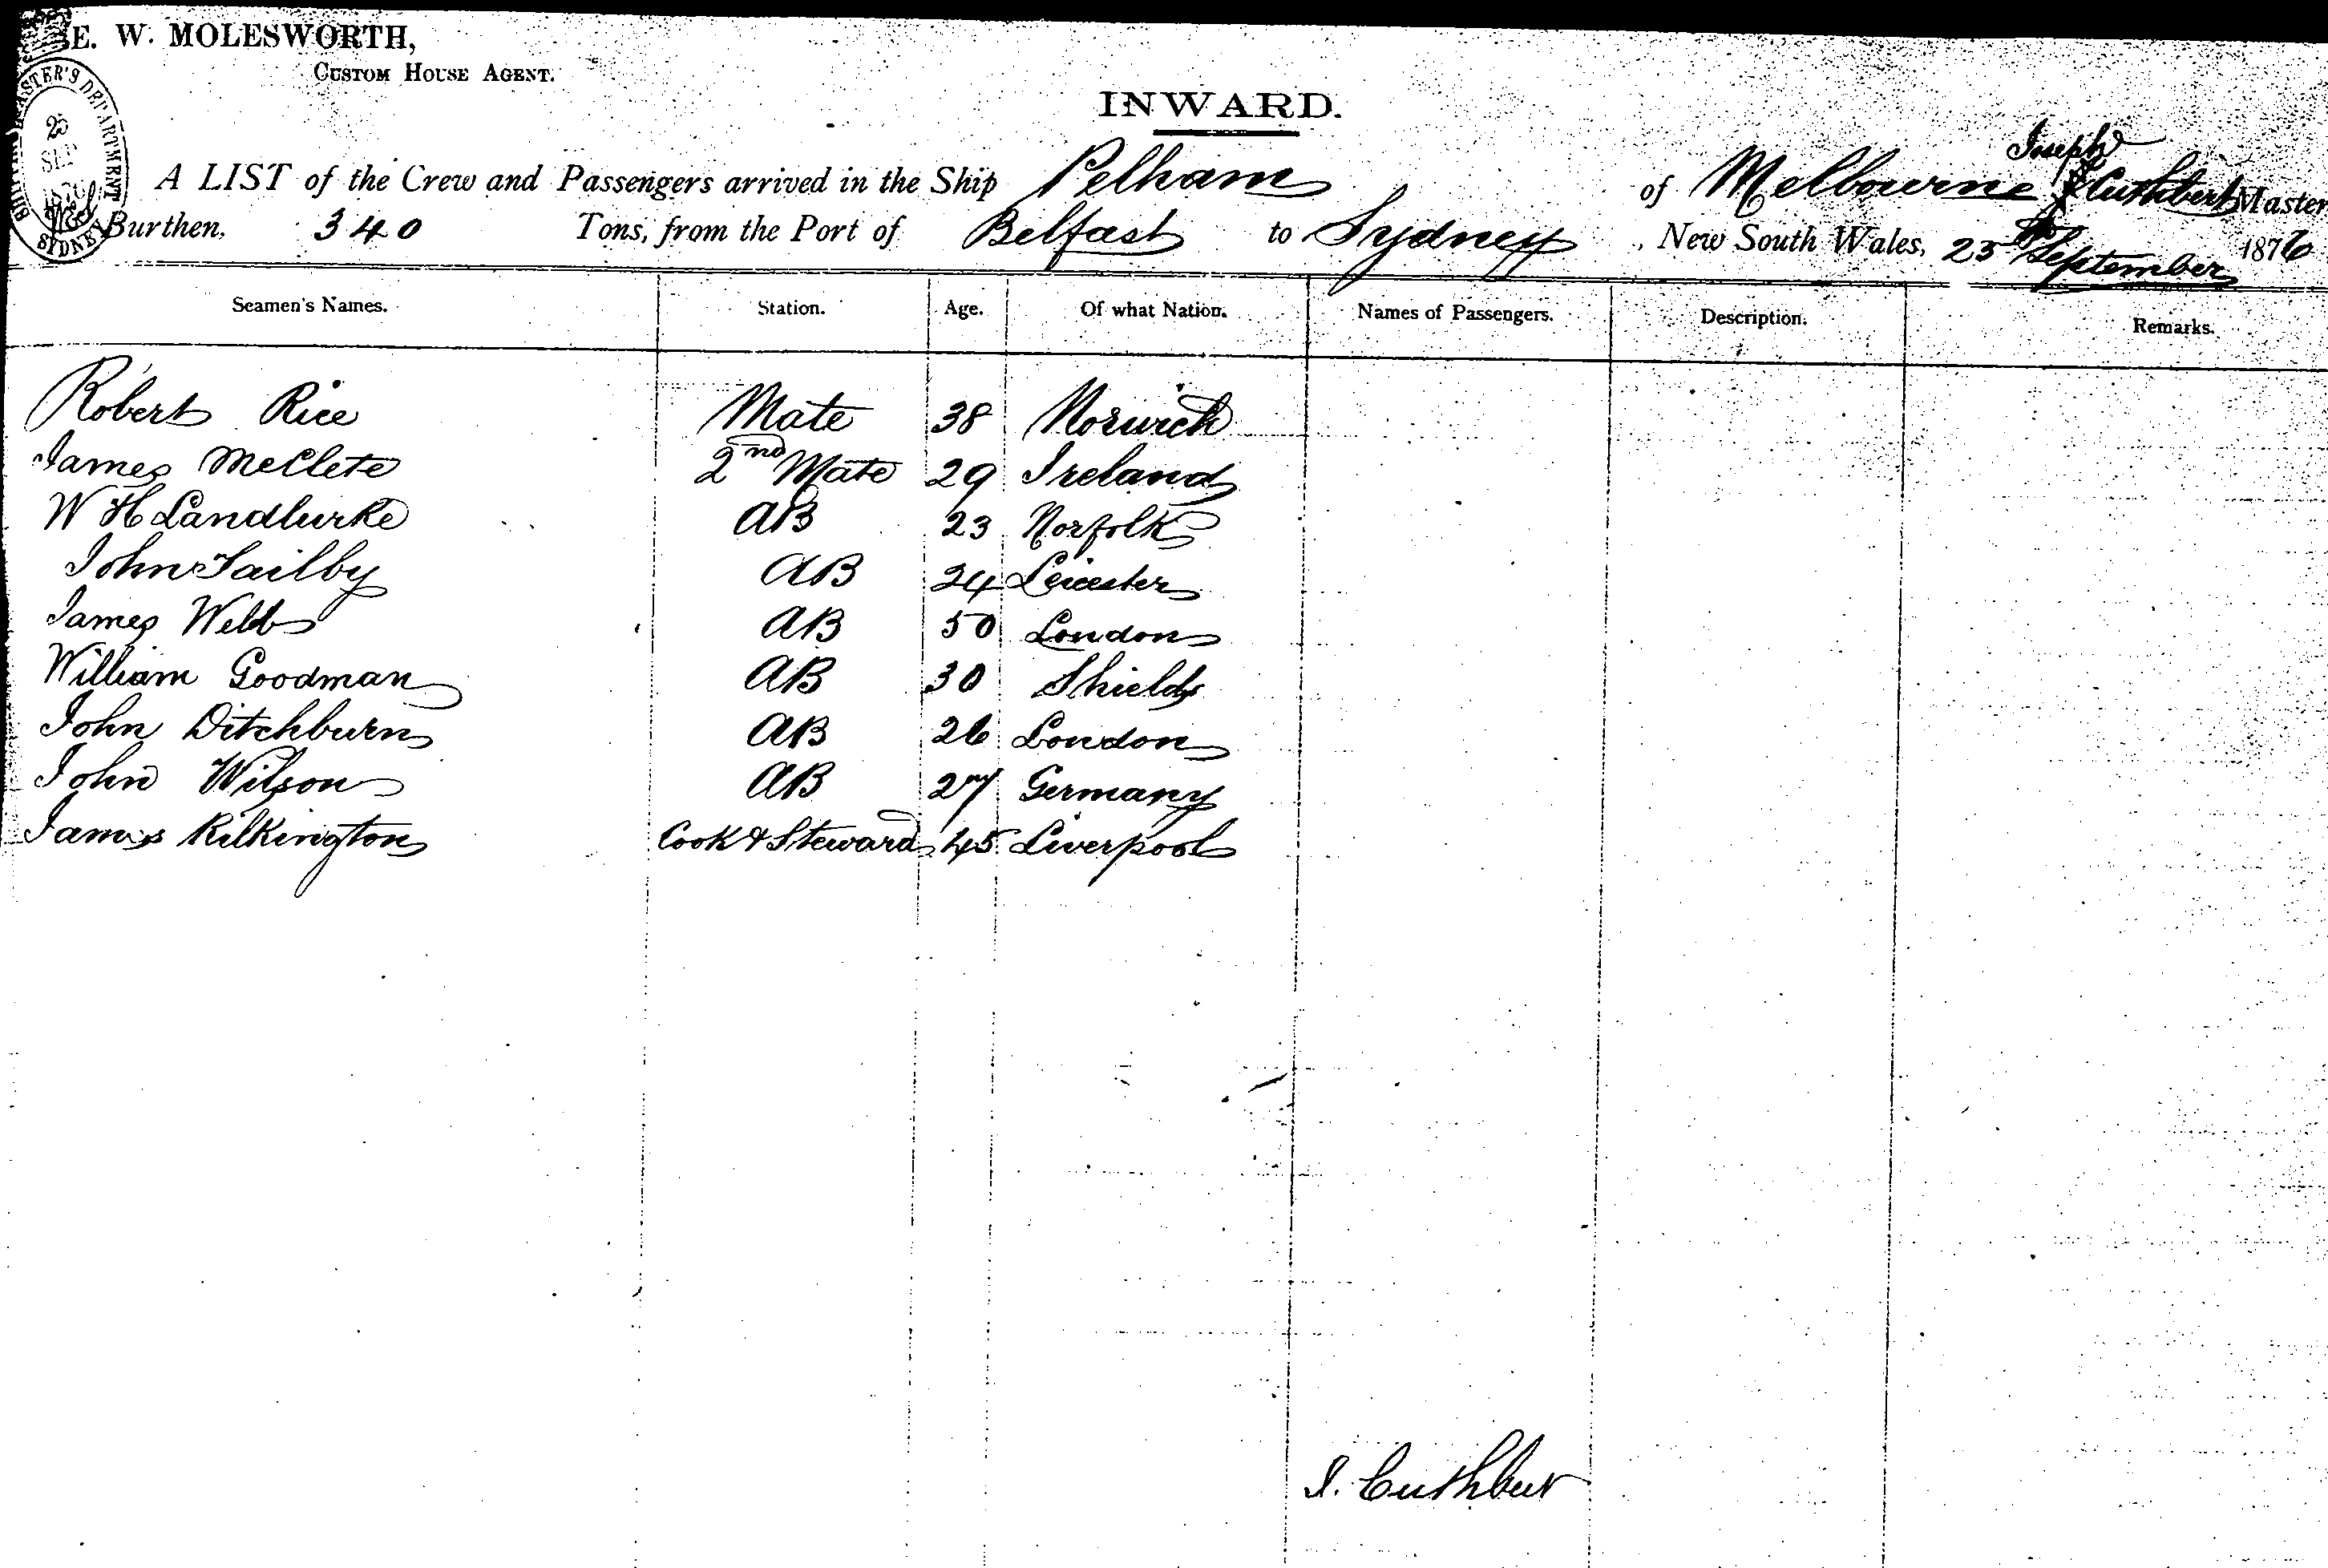 E. W. MOLESWORTH,
CUSTOM HOUSE AGENT.
MASTER'S DEPARTMENT
25
SEP
SYDNEY
INWARD.
Joseph
A LIST of the Crew and Passengers arrived in the Ship Pelham of Melbourne Cuthbert Master
Burthen, 340 Tons, from the Port of Belfast to Sydney, New South Wales, 25th September 1876
Seamen's Names. Station. Age. Of what Nation. Names of Passengers. Description. Remarks.
Robert Rice Mate 38 Norwich
James McClete 2nd Mate 29 Ireland
W H Landlurke AB 23 Norfolk
John Tailby AB 24 Leicester
James Webb AB 50 London
William Goodman AB 30 Shields
John Ditchburn AB 26 London
John Wilson AB 27 Germany
James Kilkington Cook & Steward 45 Liverpool
J. Cuthbert